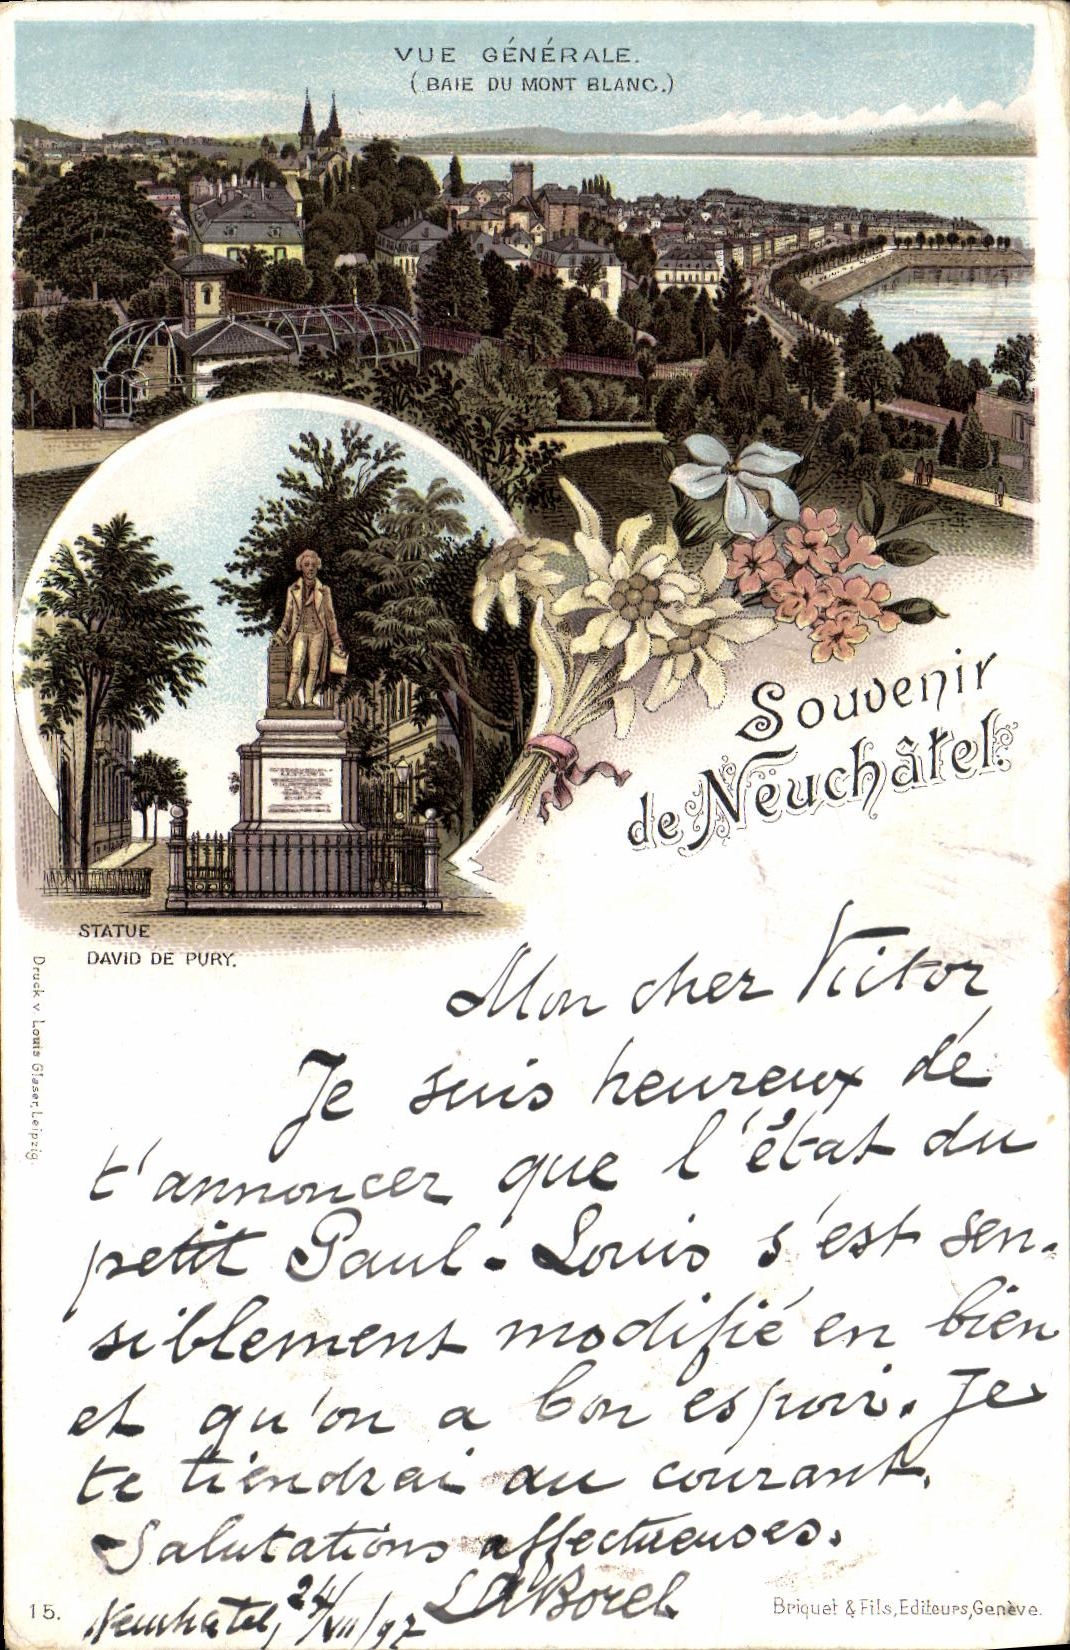 VUE GÉNÉRALE.
( BAIE DU MONT BLANC.)
Souvenir
de Neuchâtel.
STATUE
DAVID DE PURY.
Druck v. Louis Glaser, Leipzig.
Mon cher Victor
Je suis heureux de
t'annoncer que l'état du
petit Paul-Louis s'est sen-
siblement modifié en bien
et qu'on a bon espoir. Je
te tiendrai au courant.
Salutations affectueuses.
Borel
Neuchâtel, 24/VII/97
15.
Briquet & Fils, Editeurs, Genève.